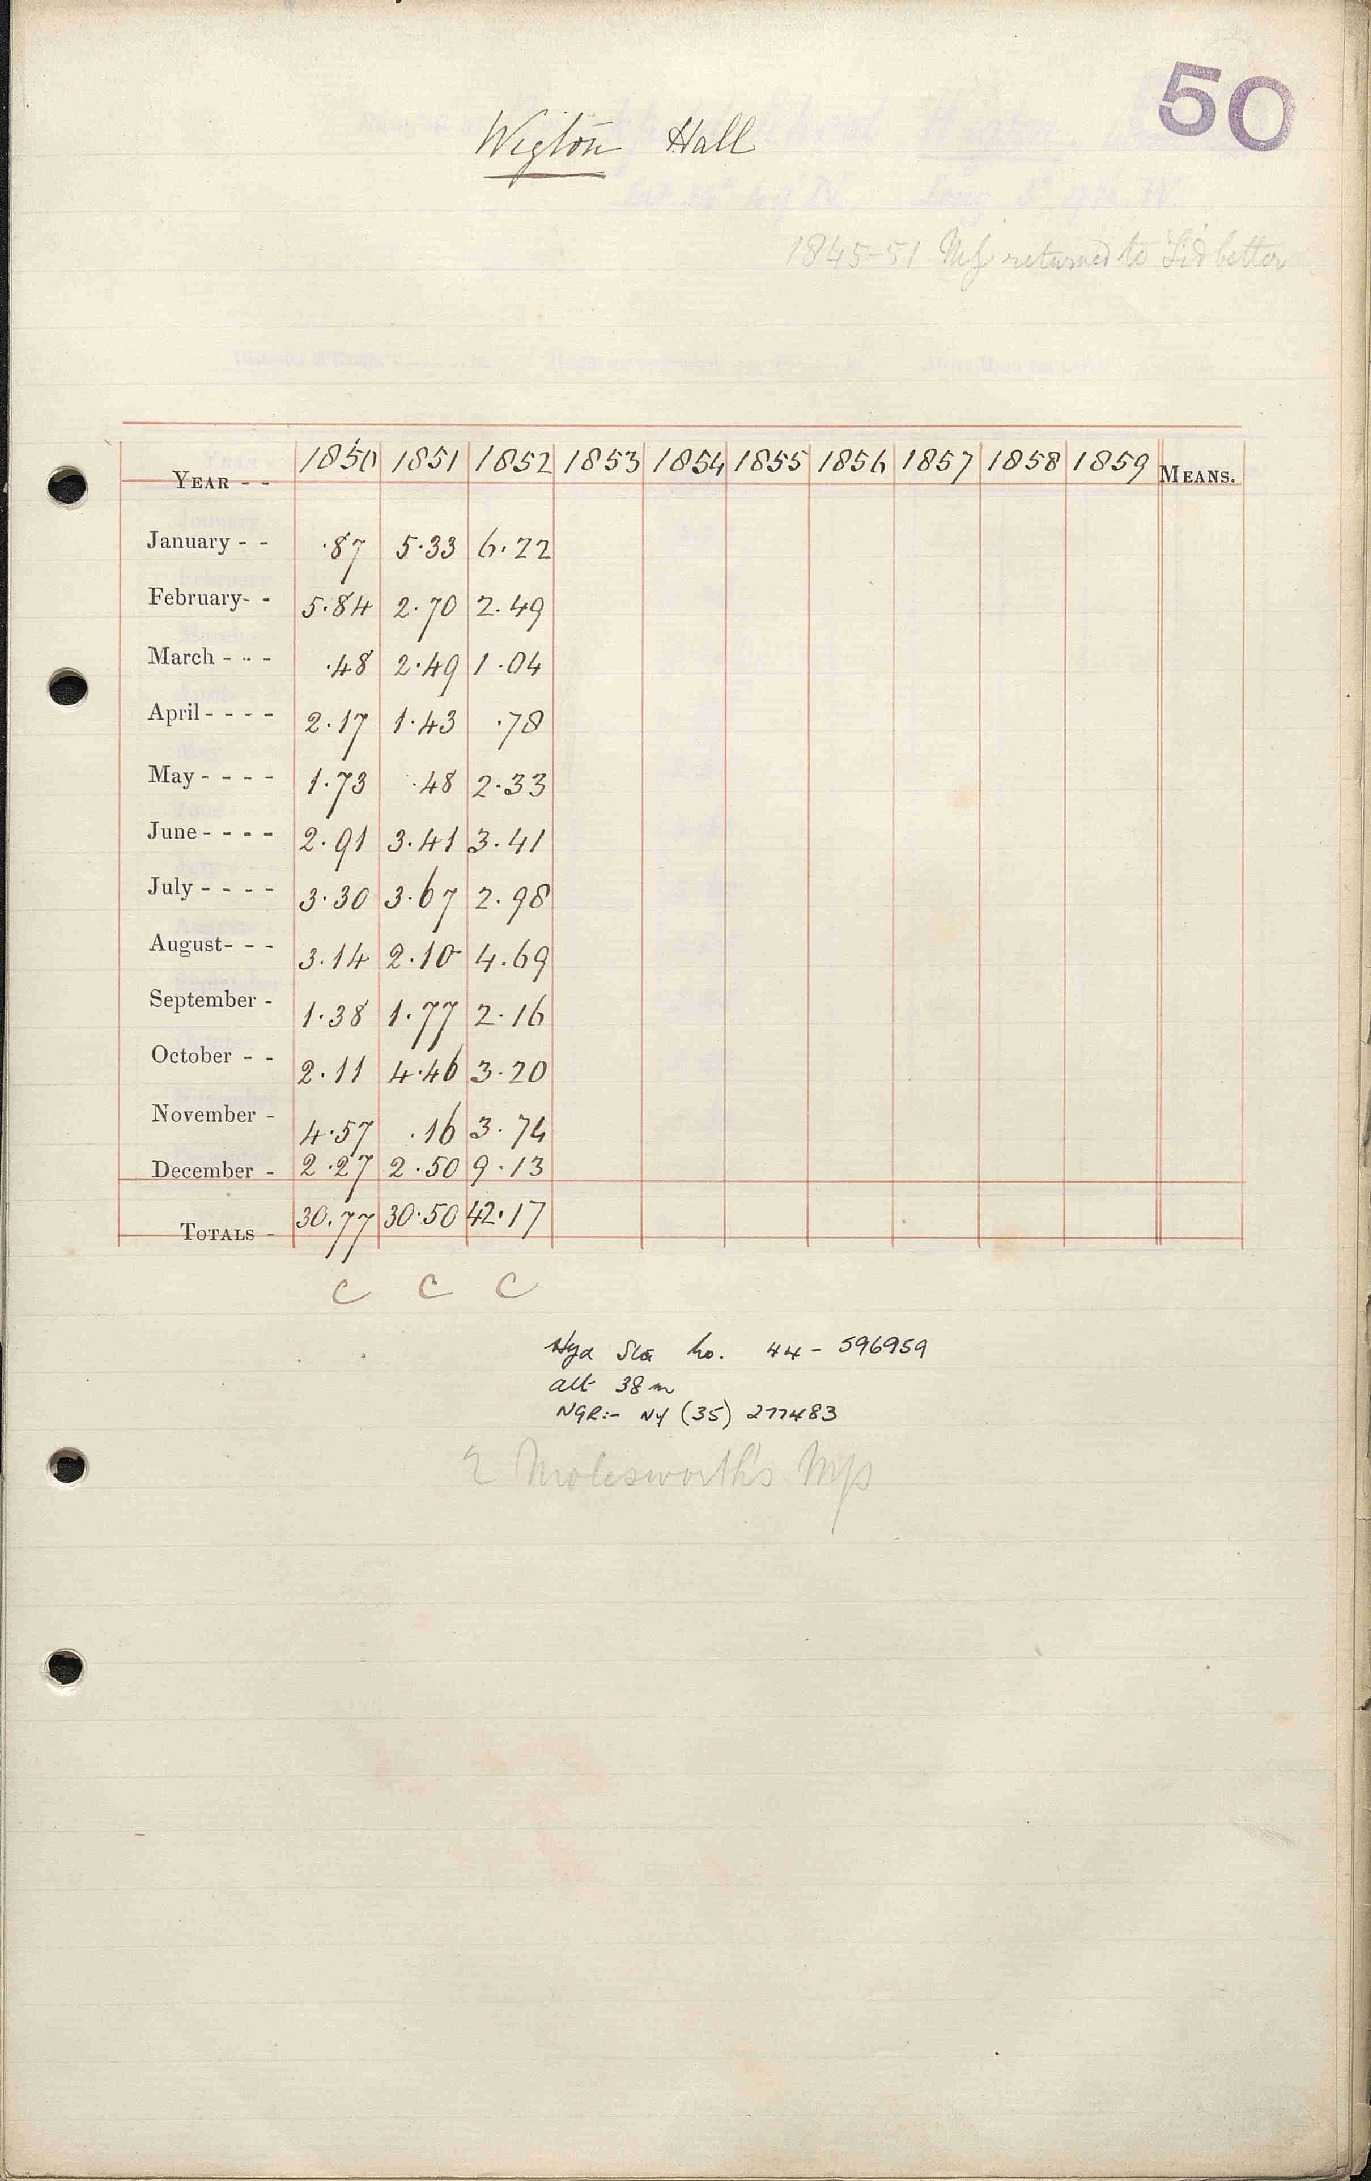 50
Wigton Hall
1845-51 Mss returned to Sidbetter
YEAR - - 1850 1851 1852 1853 1854 1855 1856 1857 1858 1859 MEANS.
January - - .87 5.33 6.22
February- - 5.84 2.70 2.49
March - - - .48 2.49 1.04
April - - - - 2.17 1.43 .78
May - - - - 1.73 .48 2.33
June - - - - 2.91 3.41 3.41
July - - - - 3.30 3.67 2.98
August- - - 3.14 2.10 4.69
September - 1.38 1.77 2.16
October - - 2.11 4.46 3.20
November - 4.57 .16 3.74
December - 2.27 2.50 9.13
TOTALS - 30.77 30.50 42.17
C C C
Hyd Sta no. 44 - 596959
alt 38 m
NGR:- NY (35) 277483
2 Molesworth's Mss